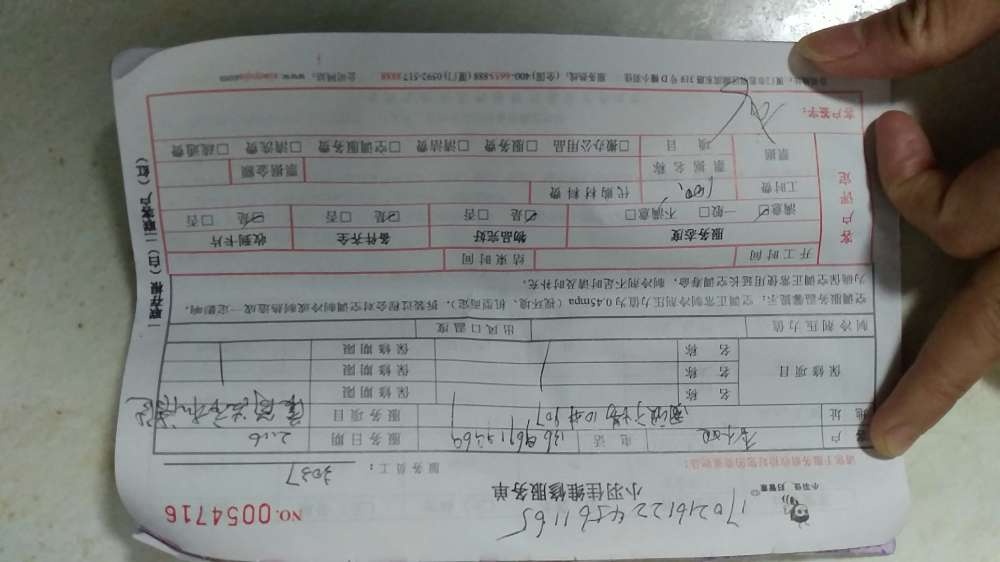 小羽佳 归管家
1702161224561165
小羽佳维修服务单
NO. 0054716
请您于服务前收拾好您的贵重物品!
服务员工: 3037
客户 电话 服务日期 2.16
地址 服务项目
保修项目 名称 保修期限
名称 保修期限
名称 保修期限
制冷剂压力值 出风口温度
空调服务温馨提示: 空调正常制冷剂压力值为0.45mpa(视环境、机型而定), 拆装过程会对空调制冷或制热造成一定影响,
为确保空调正常使用延长空调寿命, 制冷剂不足时请及时补充。
开工时间 结束时间
客户评定
服务态度 物品完好 备件齐全 收到卡片
☑满意 一般☐ 不满意☐ ☑是 ☐否 ☑是 ☐否 ☑是 ☐否
工时费 代购材料费
票据 票据名称 票据金额
项目 ☐搬办公用品 ☐服务费 ☐清洁费 ☐空调服务费 ☐清洗费 ☐疏通费
客户签字:
服务热线: (全国) 400-6655-888 (厦门) 0592-517 8888 公司网站:
一联存根 (白) 二联客户 (红)